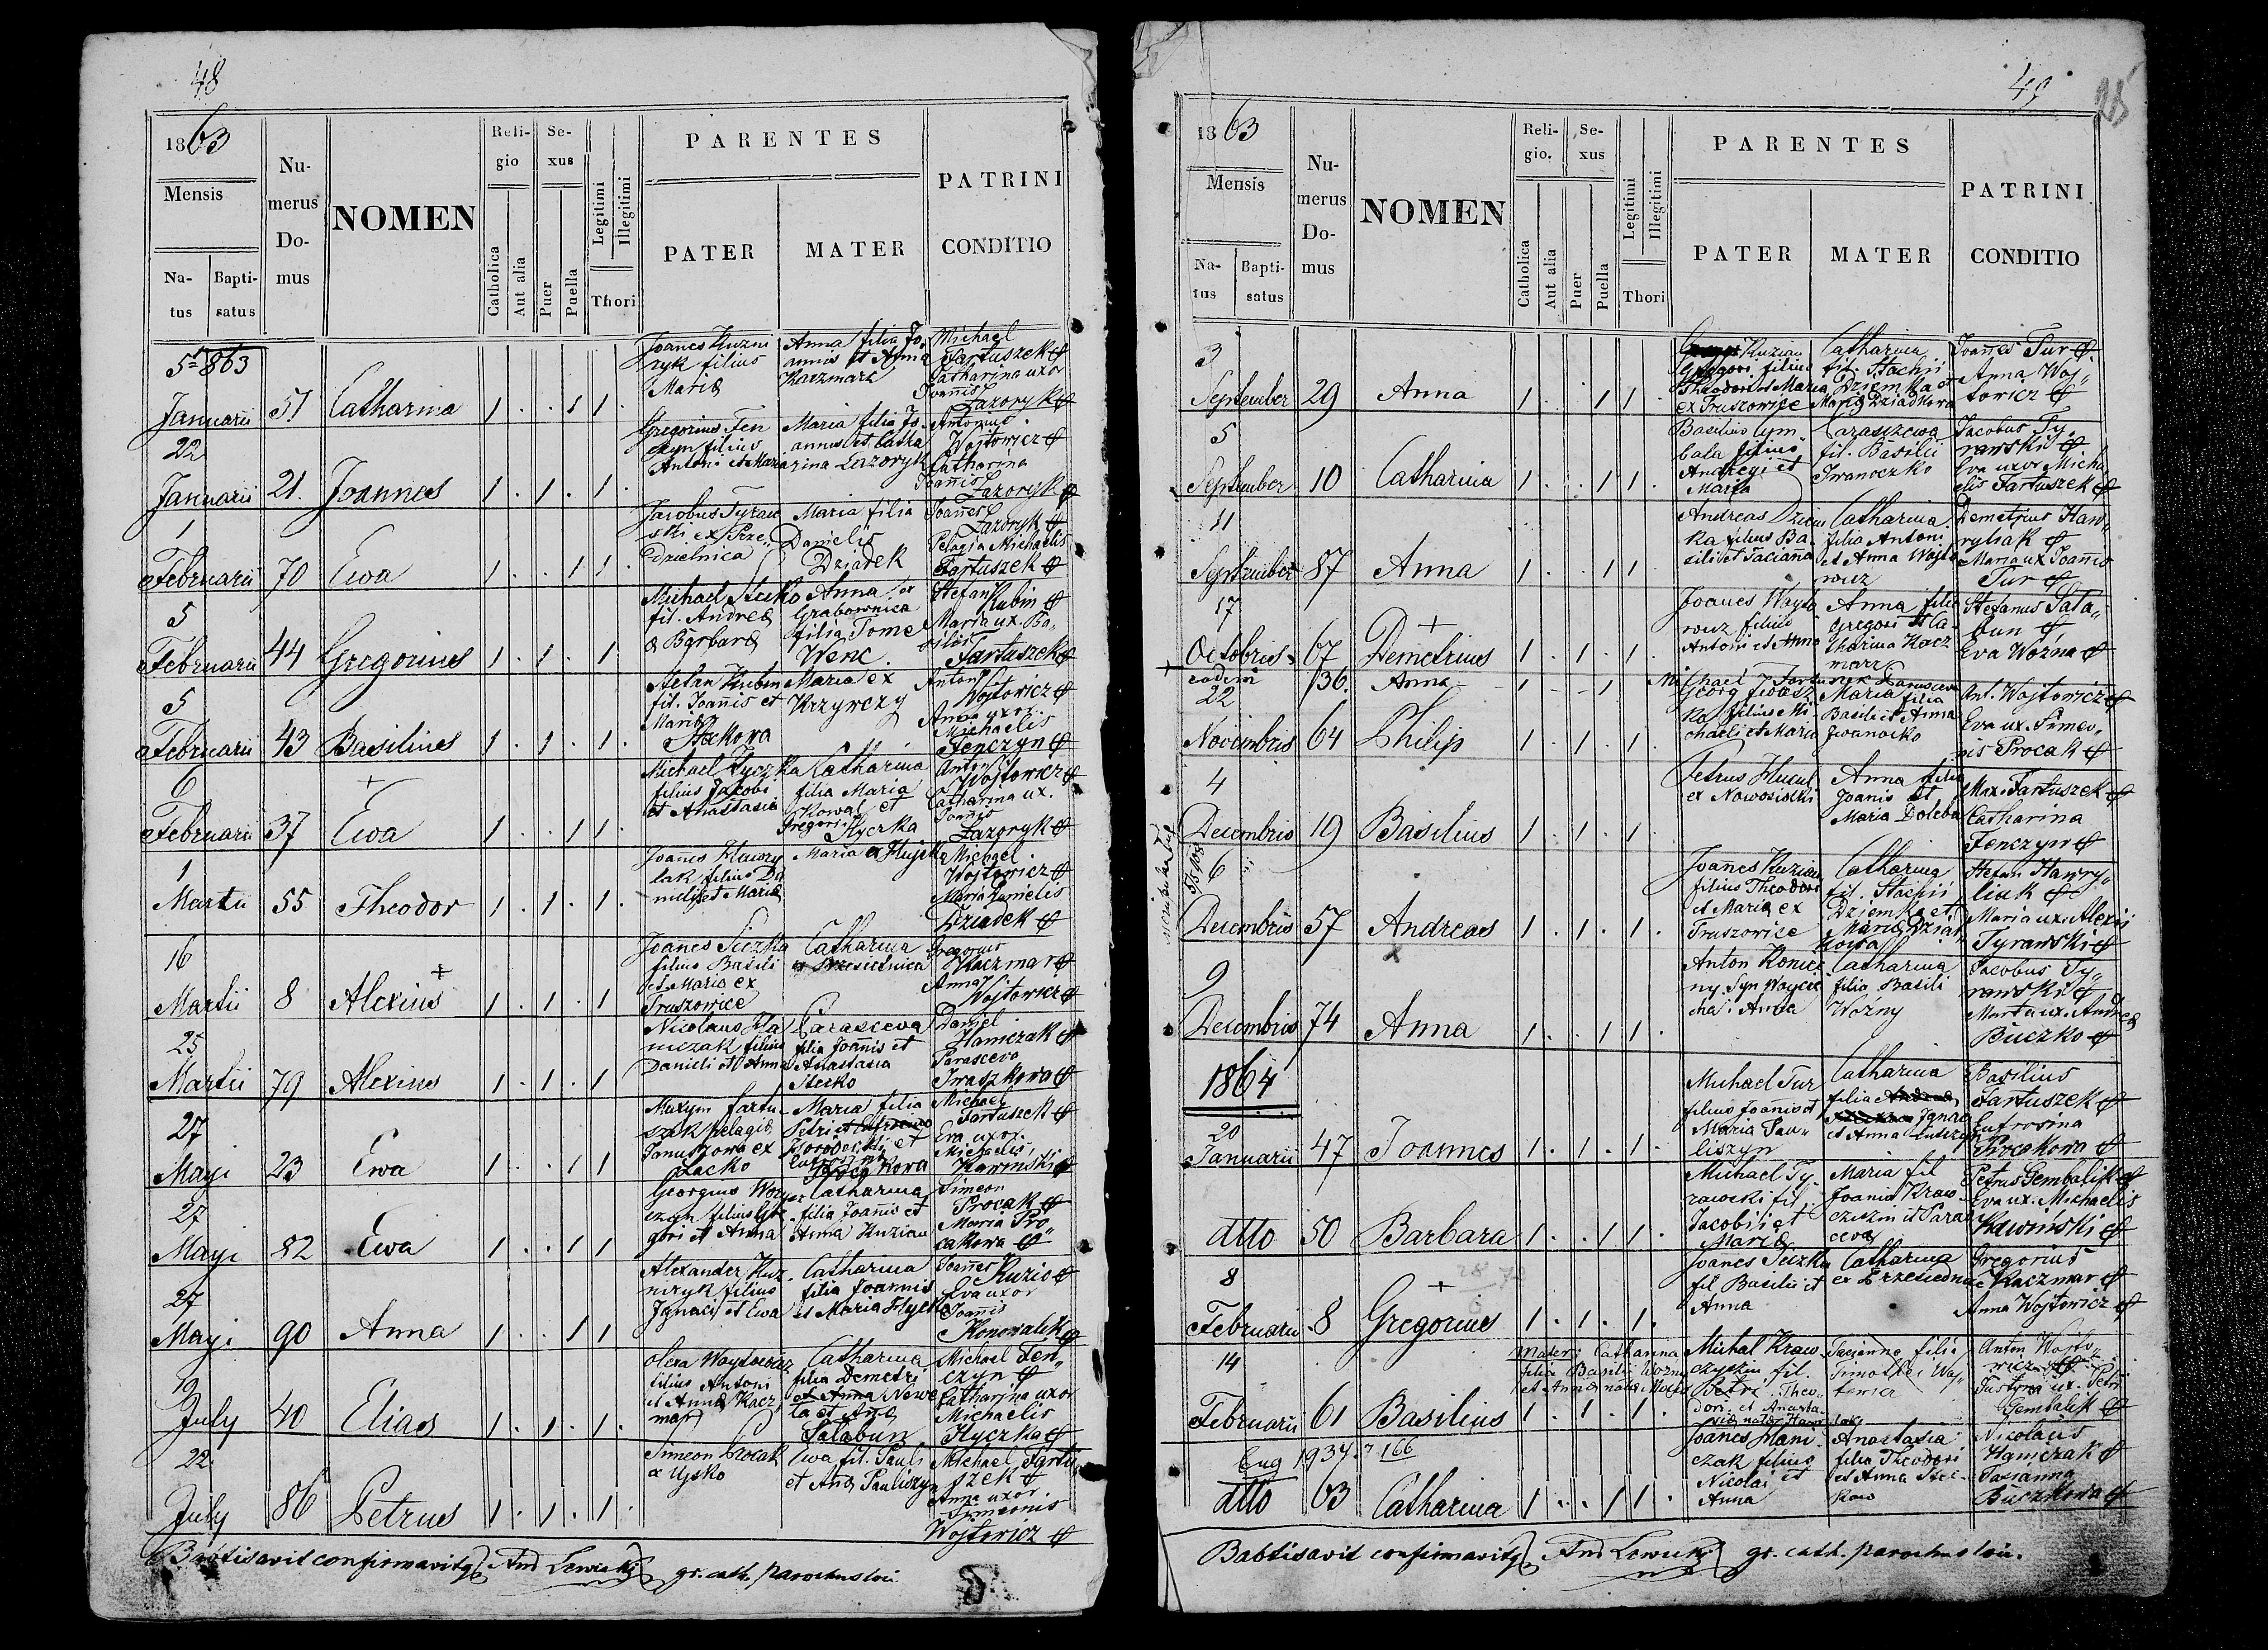 48
1863
Mensis
Na-
tus
Bapti-
satus
Nu-
merus
Do-
mus
NOMEN
Reli-
gio
Catholica
Aut alia
Se-
xus
Puer
Puella
Legitimi
Illegitimi
Thori
PARENTES
PATER
MATER
PATRINI
CONDITIO
5 863
Januarii 51 Catharina 1 . . 1 1 .
Joanes Kuzni
ryk filius
Maria
Anna filia Jo
annis et Anna
Kaczmarz
Michael
Fartuszek
Catharina uxor
Joannis
Lazoryk
22
Januarii 21. Joannes 1 . 1 . 1 .
Gregorius Fen
czyn filius
Antoni et Maria
Maria filia Jo
annis et Catha
rina Lazoryk
Antonius
Wojtowicz
Catharina
Joannis
Lazoryk
1
Februarii 70 Ewa 1 . . 1 1 .
Jacobus Tyraw
ski ex Prze
dzielnica
Maria filia
Danielis
Dziadek
Joannes
Lazoryk
Pelagia Michaelis
Fartuszek
5
Februarii 44 Gregorius 1 . 1 . 1 .
Michael Stecko
fil. Andrea
& Barbara
Anna ex
Grabownica
filia Tome
Wenc.
Stefan
Kubin
Maria ux. Ba
silii
Fartuszek
5
Februarii 43 Basilius 1 . 1 . 1 .
Stefan Kubin
fil. Joannis et
Maria
Stekowa
Maria ex
Krzywczy
Anton
Wojtowicz
Anna uxor
Michaelis
Fenczyn
6
Februarii 37 Ewa 1 . . 1 1
Michael Hyczka
filius Jacobi
et Anastasia
Catharina
filia Maria
Kowal et
Gregorii
Hyczka
Anton
Wojtowicz
Catharina ux.
Joannis
Lazoryk
1
Martii 55 Theodor 1 . 1 . 1 .
Joanes Hawry
lak filius Da
nielis et Maria
Maria ex Hujsko
Michael
Wojtowicz
Maria Danielis
Dziadek
16
Martii 8 Alexius 1 . 1 . 1
Joanes Siczka
filius Basili
et Maria ex
Truszowice
Catharina
ex Brzesiednica
Gregorius
Kaczmar
Anna
Wojtowicz
25
Martii 79 Alexius 1 . 1 . 1
Nicolaus Ha
niczak filius
Danieli et Anna
Parasceva
filia Joannis et
Anastasia
Stecko
Daniel
Haniczak
Parasceva
Iwaszkowa
27
Mayi 23 Ewa 1 . . 1 1
Maxym Fartu
szek Pelagia
Januszowa ex
Lacko
Maria filia
Petri
Horodecki et
Michael
Fartuszek
Eva uxor
Michaelis
Kawinski
27
Mayi 82 Ewa 1 . . 1 1
Georgius Woy
czyn filius Gre
gori et Anna
Catharina
filia Joannis et
Anna Kuzian
Simeon
Procak
Maria Pro
cakowa
27
Mayi 90 Anna 1 . . 1 1
Alexander Kuz
niryk filius
Ignaci et Ewa
Catharina
filia Joannis
et Maria Hyczka
Joannes
Kuzio
Eva uxor
Joannis
Konowalik
July 40 Elias 1 . 1 . 1 .
Olexa Woytowicz
filius Antoni
et Anna Kacz
mar
Catharina
filia Demetri
et Anna
Salabun
Michael Fen
czyn
Catharina uxor
Michaelis
Hyczka
22
July 86 Petrus 1 . 1 . 1 .
Simeon Procak
ex Ujsko
Ewa fil. Pauli
et Anna Pauliszyn
Michael Fartu
szek
Anna uxor
Symeonis
Wojtowicz
Babtisavit confirmavitq And Lewicki gr. cath. parochus loci
49
25
1863
Mensis
Na-
tus
Bapti-
satus
Nu-
merus
Do-
mus
NOMEN
Reli-
gio.
Catholica
Aut alia
Se-
xus
Puer
Puella
Legitimi
Illegitimi
Thori
PARENTES
PATER
MATER
PATRINI
CONDITIO
3
September 29 Anna 1 . . 1 1 .
Kuzian
Gregori filius
Theodori et Maria
ex Truszowice
Catharina
fil. Stachii
Dziemka et
Maria Dziadkowa
Joannes Tur
Anna Woj
towicz
5
September 10 Catharina 1 . . 1 1
Basilius Cym
bala filius
Andreyi et
Maria
Parasceva
fil. Basilii
Iwanoczko
Jacobus Ty
rawski
Eva uxor Micha
elis Fartuszek
11
September 87 Anna 1 . . 1 1
Andreas Dziem
ka filius Ba
silii et Tacianna
Catharina
filia Antoni
et Anna Wojto
wicz
Demetrius Haw
ryliak
Maria ux Joannis
Tur
17
Octobris 67 Demetrius 1 . 1 . 1 .
Joanes Woyto
wicz filius
Antoni et Anna
Anna filia
Gregori et Ca
tharina Kacz
marz
Stefanus Sala
bun
Eva Wozna
eadem 36. Anna 1 - 1
Michael Fartuszek Parasceva
22
Novembris 64 Philip 1 . 1 . 1 .
Georg Iwasz
ko filius Mi
chaeli et Maria
Maria filia
Basili et Anna
Iwanocko
Ant. Wojtowicz
Eva ux. Simeo
nis Procak
4
Decembris 19 Basilius 1 . 1 . 1
Petrus Hucul
ex Nowosiolki
Anna filia
Joanis et
Maria Doleba
Max. Fartuszek
Catharina
Fenczyn
6
Decembris 57 Andreas 1 . 1 . 1 .
Joanes Kuzian
filius Theodori
et Maria ex
Truszowice
Catharina
fil. Stachii
Dziemka et
Maria Dziad
kowa
Stefan Hawry
liak
Maria ux. Alexii
Tyrawski
9
Decembris 74 Anna 1 . . 1 1 .
Anton Konicz
ny Syn Woycie
cha i Anna
Catharina
filia Basili
Wozny
Jacobus Ty
rawski
Marta ux. Andrea
Buczko
1864
20
Januarii 47 Joannes 1 . 1 . 1 .
Michael Tur
filius Joannis et
Maria Pau
liszyn
Catharina
filia Ignaci
et Anna
Basilius
Fartuszek
Eufrosina
Procakowa
dtto 50 Barbara 1 . . 1 1 .
Michael Ty
rawski fil.
Jacobi et
Maria
Maria fil
Joannis Kraw
czyszin et Paras
ceva
Petrus Gembalik
Eva ux. Michaelis
Kawinski
8
Februarii 8 Gregorius 1 . 1 . 1 .
Joanes Siczka
fil Basilii et
Anna
Catharina
ex Brzesiednice
Gregorius
Kaczmar
Anna Wojtowicz
14
Februarii 61 Basilius 1 . 1 . 1 .
Mater: Catharina
filia Basili Wozny
Michal Kraw
czyszin fil.
Petri Theo
dori et Anasta
Tacianna filia
Timothei Woj
towicz
Anton Wojto
wicz
Justyna ux. Petri
Gembalik
Eug 1934 r 166
dtto 63 Catharina 1 . . 1 1 .
Joanes Hani
czak filius
Nicolai et
Anna
Anastasia
filia Theodori
et Anna Stec
kow
Nicolaus
Haniczak
Tacianna
Buczkowa
Babtisavit confirmavitq And Lewicki gr. cath. parochus loci.